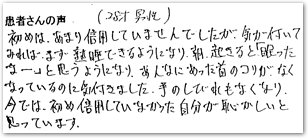 患者さんの声 (28才 男性)
初めは、あまり信用していませんでしたが、気が付いて
みれば、まず、熟睡できるようになり、朝、起きると「眠った
なー」と思うようになり、あんなにあった首のコリがなく
なっているのに気付きました。手のしびれもなくなり、
今では、初め信用していなかった自分が恥かしいと
思っています。